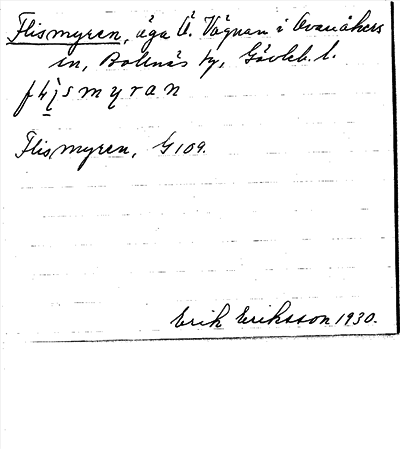 Flismyren, äga Ö. Vågnan i Ovanåkers
sn, Bollnäs tg, Gävleb. l.
flismyran
Flismyren, G 109.
Erik Eriksson 1930.